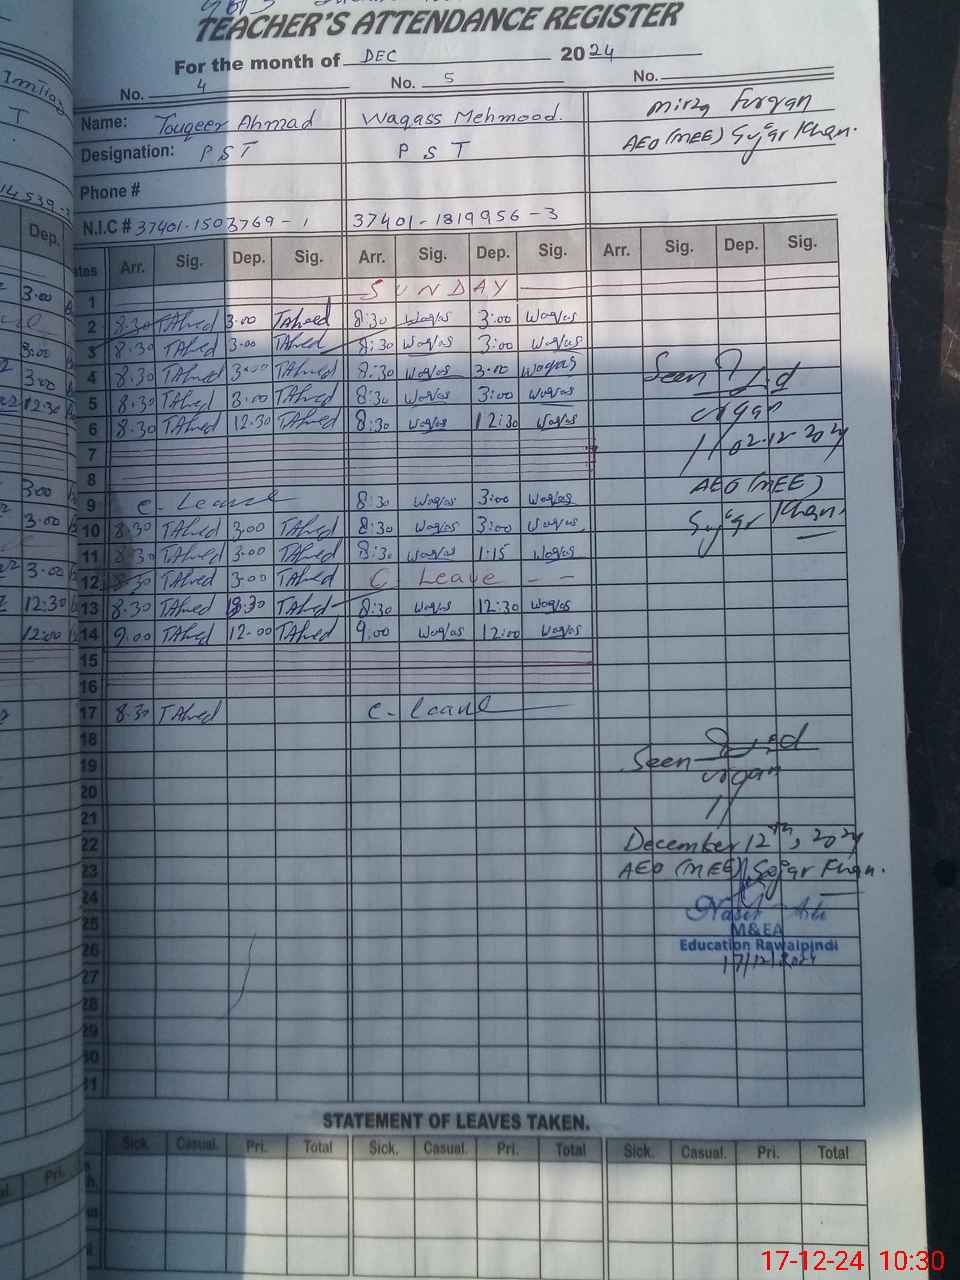 TEACHER'S ATTENDANCE REGISTER
For the month of DEC 2024
No. 4 No. 5 No.
Name: Touqeer Ahmad Waqass Mehmood. Mirza Furqan
Designation: PST PST AEO (MEE) Gujar Khan.
Phone #
N.I.C # 37401-1503769-1 37401-1819956-3
Arr. Sig. Dep. Sig. Arr. Sig. Dep. Sig. Arr. Sig. Dep. Sig.
1 SUNDAY
2 8.30 TAhmed 3.00 TAhmed 8:30 Waqas 3:00 Waqas
3 8.30 TAhmed 3.00 TAhmed 8:30 Waqas 3:00 Waqas
4 8.30 TAhmed 3.00 TAhmed 8:30 Waqas 3.00 Waqas Seen
5 8.30 TAhmed 3.00 TAhmed 8:30 Waqas 3:00 Waqas
6 8.30 TAhmed 12.30 TAhmed 8:30 Waqas 12:30 Waqas 02-12-2024
7
8 AEO (MEE)
9 C. Leave 8:30 Waqas 3:00 Waqas Gujar Khan.
10 8.30 TAhmed 3.00 TAhmed 8:30 Waqas 3:00 Waqas
11 8.30 TAhmed 3.00 TAhmed 8:30 Waqas 1:15 Waqas
12 8.30 TAhmed 3.00 TAhmed C Leave - -
13 8.30 TAhmed TAhmed 8:30 Waqas 12:30 Waqas
14 9.00 TAhmed 12.00 TAhmed 9.00 Waqas 12:00 Waqas
15
16
17 8.30 TAhmed C- Leave
18
19 Seen
20
21
22 December 12th, 2024
23 AEO (MEE) Gujar Khan.
24
25 Nasir Ali
26 M&EA
Education Rawalpindi
27 17/12/2024
28
29
30
31
STATEMENT OF LEAVES TAKEN.
Sick. Casual. Pri. Total Sick. Casual. Pri. Total Sick. Casual. Pri. Total
17-12-24 10:30